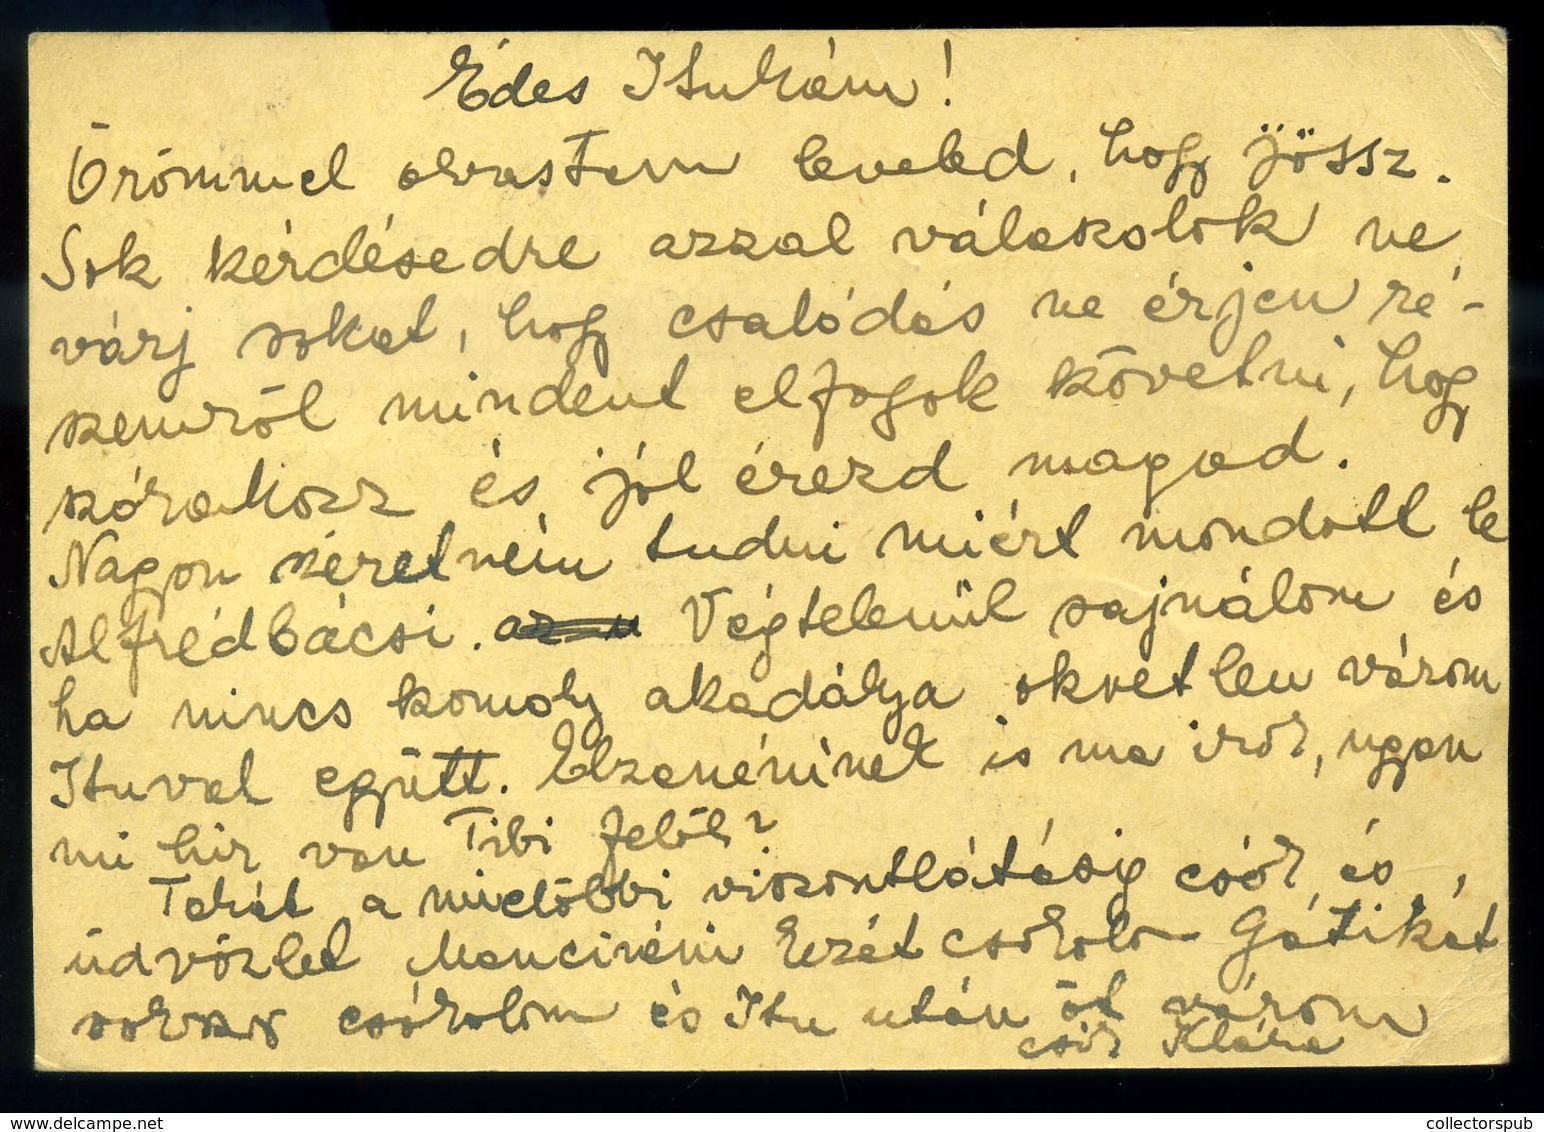 Édes Itukám!
Örömmel olvastam leveled, hogy jössz.
Sok kérdésedre azzal válaszolok ne
várj sokat, hogy csalódás ne érjen ré-
szemről mindent elfogok követni, hogy
szórakozz és jól érezd magad.
Nagyon szeretném tudni miért mondott le
Alfrédbácsi. Végtelenül sajnálom és
ha nincs komoly akadálya okvetlen várom
Ituval együtt. Elzanéninek is ma irok, ugyan
mi hir van Tibi felöl?
Tehát a mielöbbi viszontlátásig csók és
üdvözlet Mancinéni kezét csókolom Gátikát
sokszor csókolom és Itu után öt várom
csók Klára
collectorspub